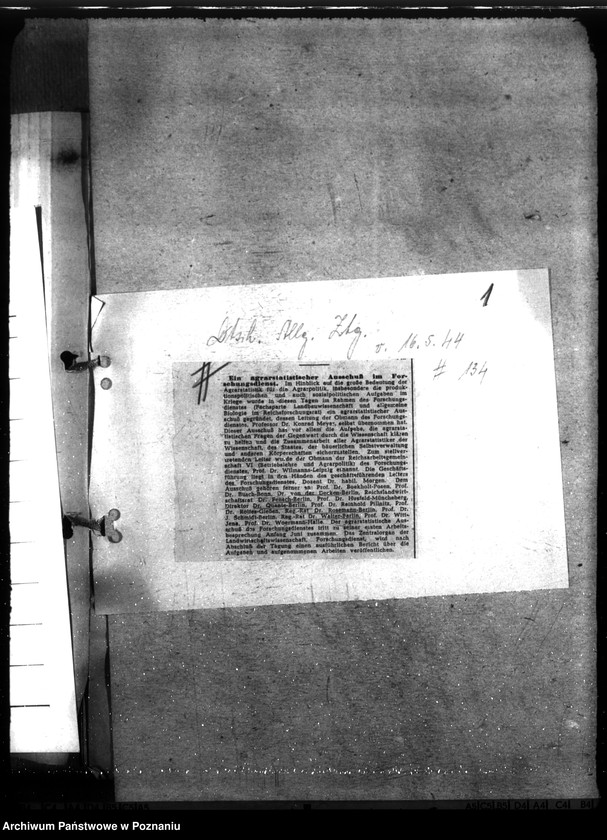 1
Dtsch. Allg. Ztg.
v. 16.5.44
# 134
#
Ein agrarstatistischer Ausschuß im For-
schungsdienst. Im Hinblick auf die große Bedeutung der
Agrarstatistik für die Agrarpolitik, insbesondere die produk-
tionspolitischen und auch sozialpolitischen Aufgaben im
Kriege wurde in diesen Tagen im Rahmen des Forschungs-
dienstes (Fachsparte Landbauwissenschaft und allgemeine
Biologie im Reichsforschungsrat) ein agrarstatistischer Aus-
schuß gegründet, dessen Leitung der Obmann des Forschungs-
dienstes, Professor Dr. Konrad Meyer, selbst übernommen hat.
Dieser Ausschuß hat vor allem die Aufgabe, die agrarsta-
tistischen Fragen der Gegenwart durch die Wissenschaft klären
zu helfen und die Zusammenarbeit aller Agrarstatistiker der
Wissenschaft, des Staates, der bäuerlichen Selbstverwaltung
und anderen Körperschaften sicherzustellen. Zum stellver-
tretenden Leiter wurde der Obmann der Reichsarbeitsgemein-
schaft VI (Betriebslehre und Agrarpolitik) des Forschungs-
dienstes, Prof. Dr. Wilmanns-Leipzig ernannt. Die Geschäfts-
führung liegt in den Händen des geschäftsführenden Leiters
des Forschungsdienstes, Dozent Dr. habil. Morgen. Dem
Ausschuß gehören ferner an: Prof. Dr. Buchholz-Posen, Prof.
Dr. Busch-Bonn, Dr. von der Decken-Berlin, Reichslandwirt-
schaftsrat Dr. Pensch-Berlin, Prof. Dr. Herfeld-Müncheberg,
Direktor Dr. Quante-Berlin, Prof. Dr. Reinhold Pillnitz, Prof.
Dr. Rolfes-Gießen, Reg.-Rat Dr. Rosemann-Berlin, Prof. Dr.
J. Schmidt-Berlin, Reg.-Rat Dr. Walter-Berlin, Prof. Dr. Witt-
Jena, Prof. Dr. Woermann-Halle. Der agrarstatistische Aus-
schuß des Forschungsdienstes tritt zu seiner ersten Arbeits-
besprechung Anfang Juni zusammen. Das Zentralorgan der
Landwirtschaftswissenschaft, Forschungsdienst, wird nach
Abschluß der Tagung einen ausführlichen Bericht über die
Aufgaben und aufgenommenen Arbeiten veröffentlichen.
A5 C5 B5 D4 A4 C4 B4
Archiwum Państwowe w Poznaniu